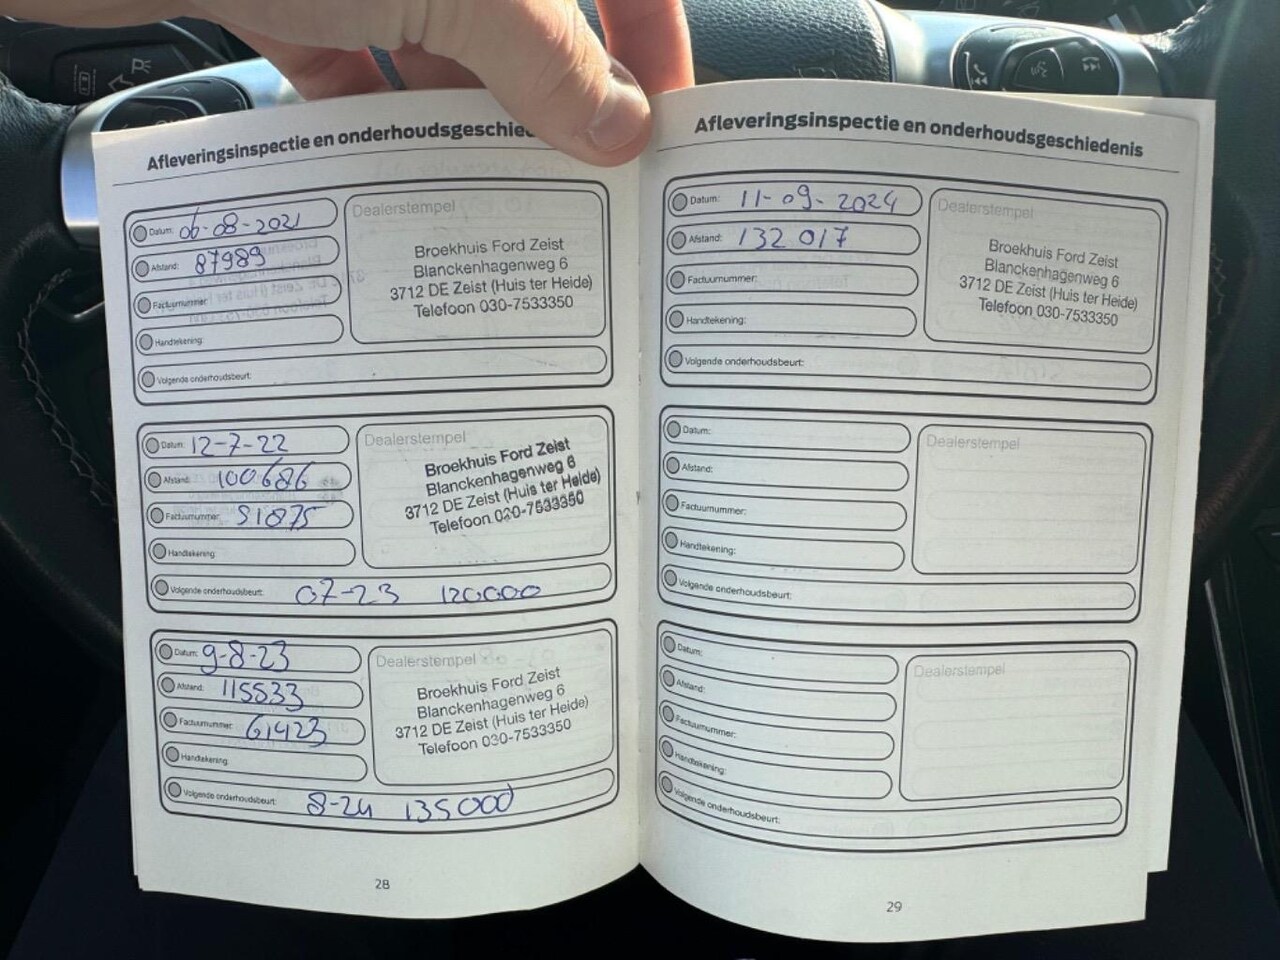 Afleveringsinspectie en onderhoudsgeschied
Datum: 06-08-2021
Afstand: 87989
Factuurnummer:
Handtekening:
Volgende onderhoudsbeurt:
Dealerstempel
Broekhuis Ford Zeist
Blanckenhagenweg 6
3712 DE Zeist (Huis ter Heide)
Telefoon 030-7533350
Datum: 12-7-22
Afstand: 100686
Factuurnummer: 51875
Handtekening:
Volgende onderhoudsbeurt: 07-23 120000
Dealerstempel
Broekhuis Ford Zeist
Blanckenhagenweg 6
3712 DE Zeist (Huis ter Heide)
Telefoon 030-7533350
Datum: 9-8-23
Afstand: 115533
Factuurnummer: 61423
Handtekening:
Volgende onderhoudsbeurt: 8-24 135000
Dealerstempel
Broekhuis Ford Zeist
Blanckenhagenweg 6
3712 DE Zeist (Huis ter Heide)
Telefoon 030-7533350
28
Afleveringsinspectie en onderhoudsgeschiedenis
Datum: 11-09-2024
Afstand: 132 017
Factuurnummer:
Handtekening:
Volgende onderhoudsbeurt:
Dealerstempel
Broekhuis Ford Zeist
Blanckenhagenweg 6
3712 DE Zeist (Huis ter Heide)
Telefoon 030-7533350
Datum:
Afstand:
Factuurnummer:
Handtekening:
Volgende onderhoudsbeurt:
Dealerstempel
Datum:
Afstand:
Factuurnummer:
Handtekening:
Volgende onderhoudsbeurt:
Dealerstempel
29